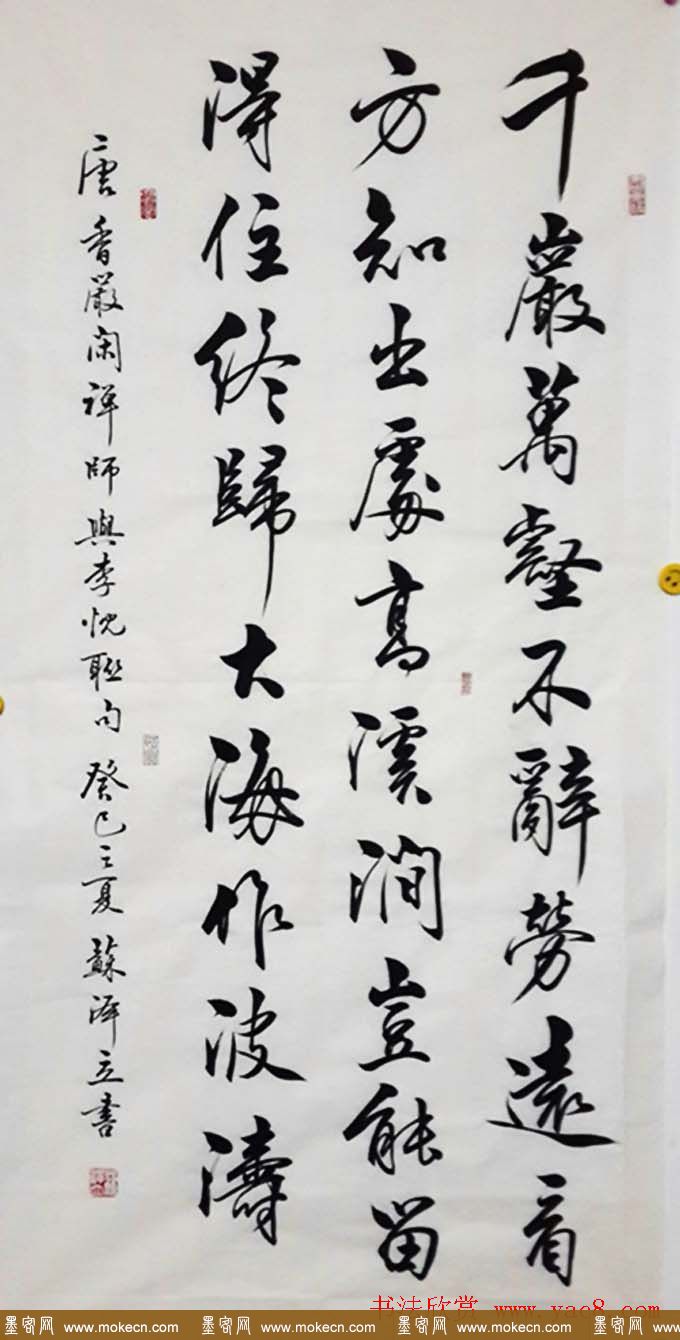 千巖萬壑不辭勞遠看
方知出處高溪澗豈能留
得住終歸大海作波濤
唐香嚴闲禅師與李忱聯句 癸巳之夏 蘇澤立書
书法欣赏 www.yac8.com
墨客网 www.mokecn.com 墨客网 www.mokecn.com 墨客网 www.mokecn.com 墨客网 www.mokecn.com